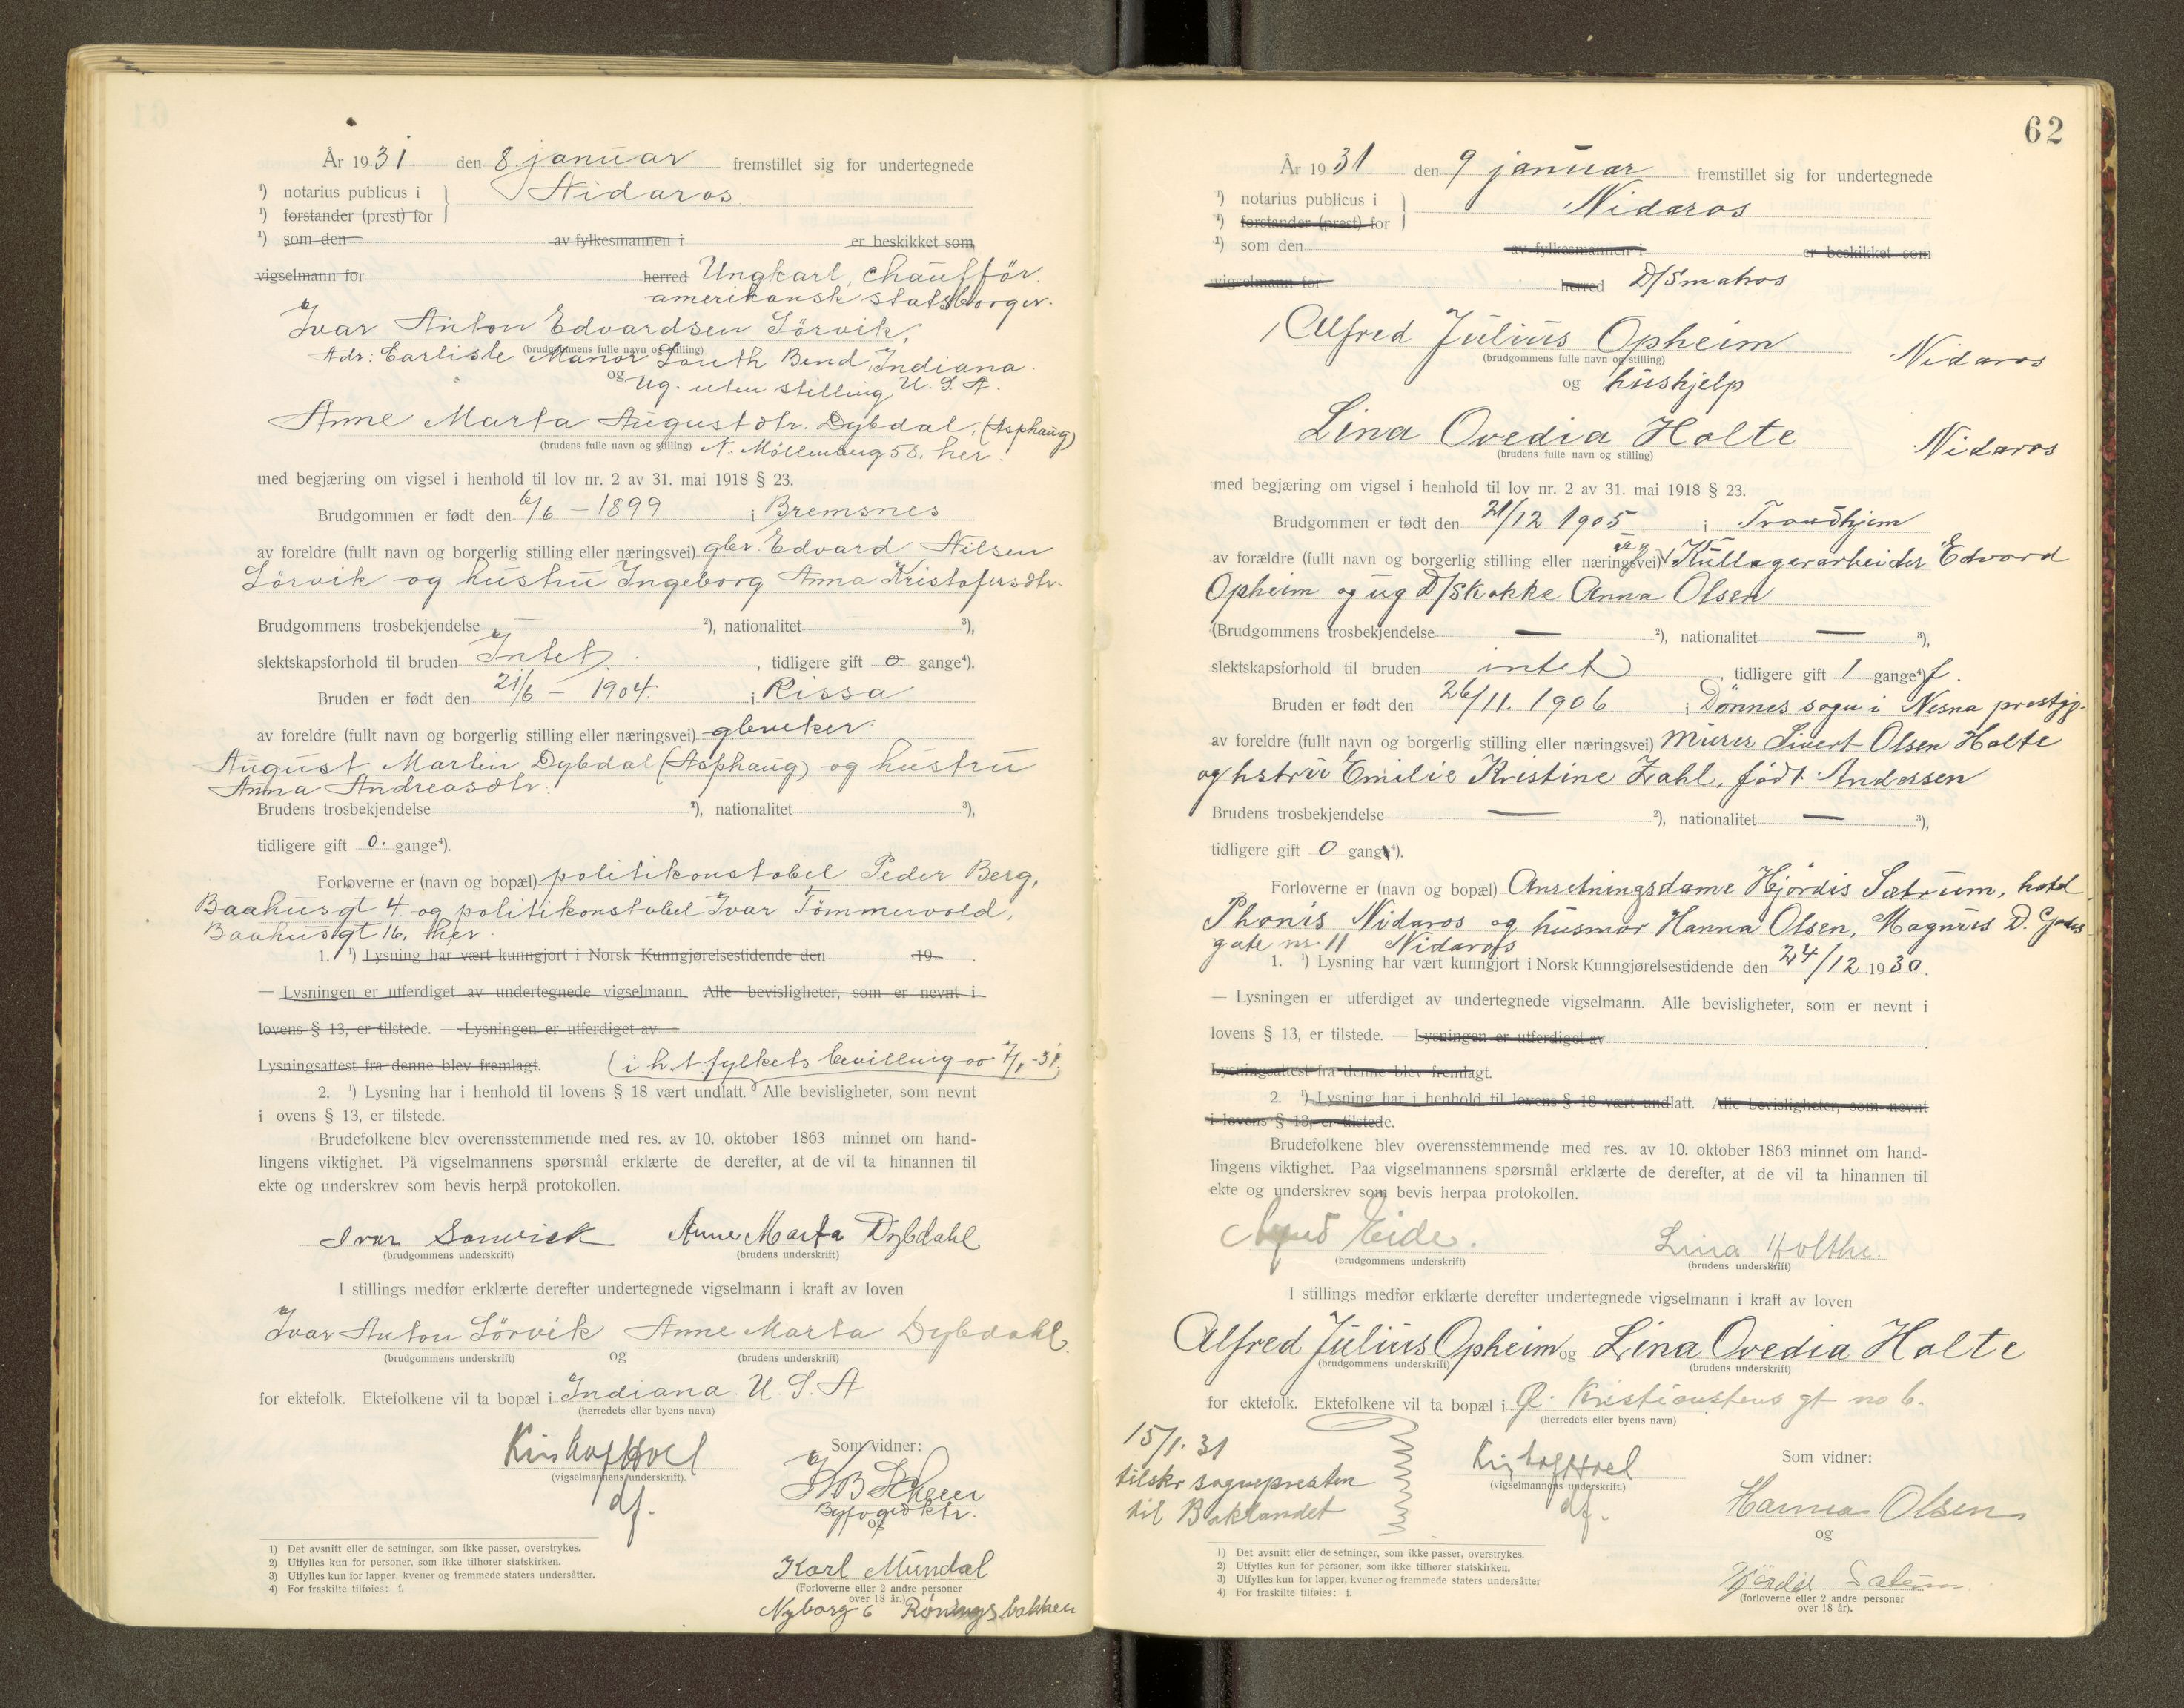 År 1931. den 8. januar fremstillet sig for undertegnede
¹) notarius publicus i Nidaros
¹) forstander (prest) for
¹) som den av fylkesmannen i er beskikket som
vigselmann for herred Ungkarl, chauffør.
amerikansk statsborger.
Ivar Anton Edvardsen Sörvik,
(brudgommens fulle navn og stilling)
Adr: Earlisle Manor South Bend, Indiana.
og Ug. uten stilling U.S.A.
Anne Marta Augustdtr. Dybdal, (Asphaug)
(brudens fulle navn og stilling) N. Möllenberg 58, her.
med begjæring om vigsel i henhold til lov nr. 2 av 31. mai 1918 § 23.
Brudgommen er født den 6/6 - 1899 i Bremsnes
av foreldre (fullt navn og borgerlig stilling eller næringsvei) gbr. Edvard Nilsen
Sörvik og hustru Ingeborg Anna Kristofersdtr.
Brudgommens trosbekjendelse ²), nationalitet ³),
slektskapsforhold til bruden Intet, tidligere gift 0. gange⁴).
Bruden er født den 21/6 - 1904 i Rissa
av foreldre (fullt navn og borgerlig stilling eller næringsvei) gbruker
August Martin Dybdal (Asphaug) og hustru
Anna Andreasdtr.
Brudens trosbekjendelse ²), nationalitet ³),
tidligere gift 0. gange⁴).
Forloverne er (navn og bopæl) politikonstabel Peder Berg,
Baahusgt 4. og politikonstabel Ivar Tömmervold,
Baahusgt 16, her.
1. ¹) Lysning har vært kunngjort i Norsk Kunngjørelsestidende den 19 .
— Lysningen er utferdiget av undertegnede vigselmann. Alle bevisligheter, som er nevnt i
lovens § 13, er tilstede. — Lysningen er utferdiget av
Lysningsattest fra denne blev fremlagt. (i h.t. fylkets bevilling av 7/1-31.
2. ¹) Lysning har i henhold til lovens § 18 vært undlatt. Alle bevisligheter, som nevnt
i ovens § 13, er tilstede.
Brudefolkene blev overensstemmende med res. av 10. oktober 1863 minnet om hand-
lingens viktighet. På vigselmannens spørsmål erklærte de derefter, at de vil ta hinannen til
ekte og underskrev som bevis herpå protokollen.
Ivar Sorwick Anne Marta Dybdahl
(brudgommens underskrift) (brudens underskrift)
I stillings medfør erklærte derefter undertegnede vigselmann i kraft av loven
Ivar Anton Sörvik og Anne Marta Dybdahl
(brudgommens underskrift) (brudens underskrift)
for ektefolk. Ektefolkene vil ta bopæl i Indiana U.S.A
(herredets eller byens navn)
Som vidner:
(vigselmannens underskrift).
df.
og
Karl Mundal
(Forloverne eller 2 andre personer
over 18 år.)
Nyborg 6 Röningsbakken
1) Det avsnitt eller de setninger, som ikke passer, overstrykes.
2) Utfylles kun for personer, som ikke tilhører statskirken.
3) Utfylles kun for lapper, kvener og fremmede staters undersåtter.
4) For fraskilte tilføies: f.
62
År 1931 den 9 januar fremstillet sig for undertegnede
¹) notarius publicus i Nidaros
¹) forstander (prest) for
¹) som den av fylkesmannen i er beskikket som
vigselmann for herred D/Smatros
Alfred Julius Opheim Nidaros
(brudgommens fulle navn og stilling)
og hushjelp
Lina Ovedia Holte Nidaros
(brudens fulle navn og stilling)
med begjæring om vigsel i henhold til lov nr. 2 av 31. mai 1918 § 23.
Brudgommen er født den 21/12 1905 i Trondhjem
av forældre (fullt navn og borgerlig stilling eller næringsvei) ug Kullagerarbeider Edvard
Opheim og ug D/Skokke Anna Olsen
(Brudgommens trosbekjendelse — ²), nationalitet — ³),
slektskapsforhold til bruden intet, tidligere gift 1 gange⁴) f.
Bruden er født den 26/11. 1906 i Dönnes sogn i Nesna prestgj.
av foreldre (fullt navn og borgerlig stilling eller næringsvei) murer Sivert Olsen Holte
og hstru Emilie Kristine Zahl, født Andersen
Brudens trosbekjendelse — ²), nationalitet — ³),
tidligere gift 0 gang⁴).
Forloverne er (navn og bopæl) Anretningsdame Hjördis Sætrum, hotel
Phønis Nidaros og husmor Hanna Olsen, Magnus D. Godes
gate nr. 11 Nidaros
1. ¹) Lysning har vært kunngjort i Norsk Kunngjørelsestidende den 24/12 1930.
— Lysningen er utferdiget av undertegnede vigselmann. Alle bevisligheter, som er nevnt i
lovens § 13, er tilstede. — Lysningen er utferdiget av
Lysningsattest fra denne blev fremlagt.
2. ¹) Lysning har i henhold til lovens § 18 vært undlatt. Alle bevisligheter, som nevnt
i lovens § 13, er tilstede.
Brudefolkene blev overensstemmende med res. av 10. oktober 1863 minnet om hand-
lingens viktighet. Paa vigselmannens spørsmål erklærte de derefter, at de vil ta hinannen til
ekte og underskrev som bevis herpaa protokollen.
Lina Holthe.
(brudgommens underskrift) (brudens underskrift)
I stillings medfør erklærte derefter undertegnede vigselmann i kraft av loven
Alfred Julius Opheim og Lina Ovedia Holte
(brudgommens underskrift) (brudens underskrift)
for ektefolk. Ektefolkene vil ta bopæl i Ø. Kristianstens gt no 6.
(herredets eller byens navn)
15/1. 31
tilskr sognepresten
til Baklandet
(vigselmannens underskrift.)
df.
Som vidner:
Hanna Olsen
og
Hjördis Sætrum
(forloverne eller 2 andre personer
over 18 år).
1) Det avsnitt eller de setninger, som ikke passer, overstrykes.
2) Utfylles kun for personer, som ikke tilhører statskirken.
3) Utfylles kun for lapper, kvener og fremmede staters undersåtter
4) For fraskilte tilføies: f.